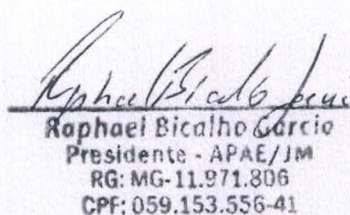 Raphael Bicalho Garcia
Raphael Bicalho Garcia
Presidente - APAE/JM
RG: MG-11.971.806
CPF: 059.153.556-41